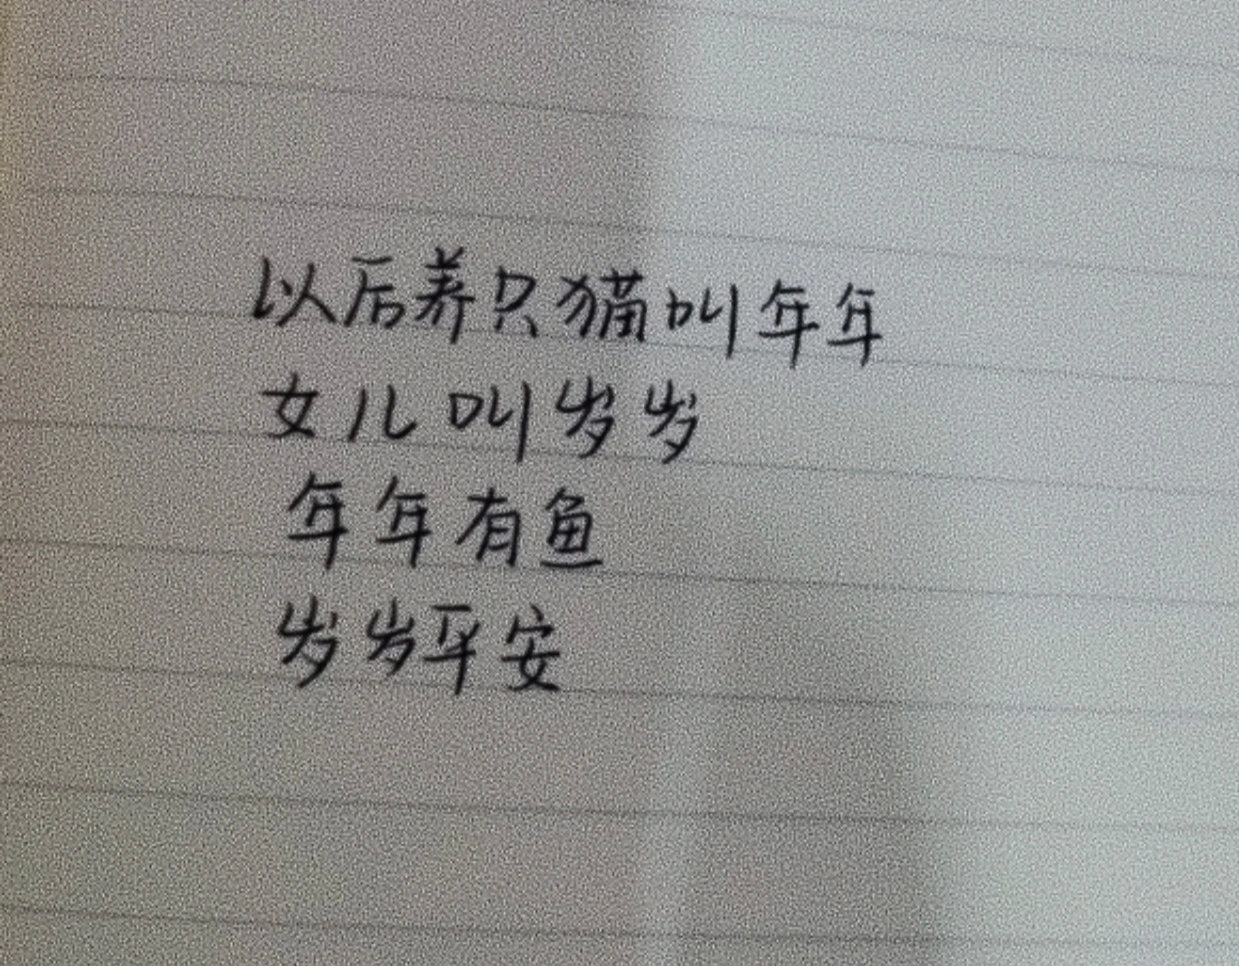 以后养只猫叫年年
女儿叫岁岁
年年有鱼
岁岁平安